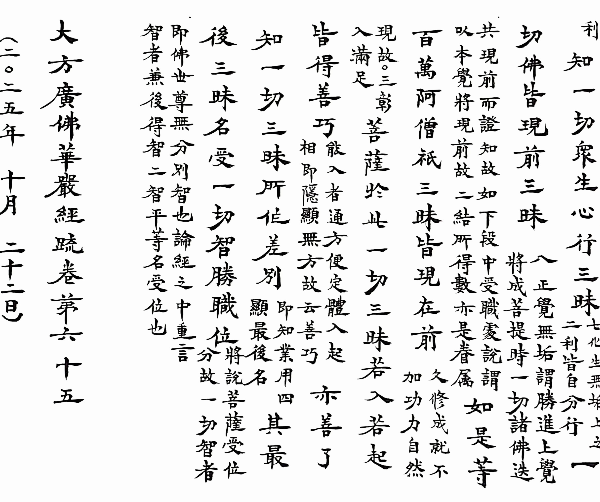 利
知一切眾生心行三昧
七化生無垢上之
二利皆自分行
一
切佛皆現前三昧
八正覺無垢謂勝進上覺
將成菩提時一切諸佛迭
共現前而證知故如下段中受職處說謂
以本覺將現前故二結所得數亦是眷屬
如是等
百萬阿僧祇三昧皆現在前
久修成就不
加功力自然
現故。三彰
入滿足
菩薩於此一切三昧若入若起
皆得善巧
能入者通方便定體入起
相即隱顯無方故云善巧
亦善了
知一切三昧所作差別
即知業用四
顯最後名
其最
後三昧名受一切智勝職位
將說菩薩受位
分故一切智者
即佛世尊無分別智也論經之中重言
智者兼後得智二智平等名受位也
大方廣佛華嚴經疏卷第六十五
(二○二五年 十月 二十二日)